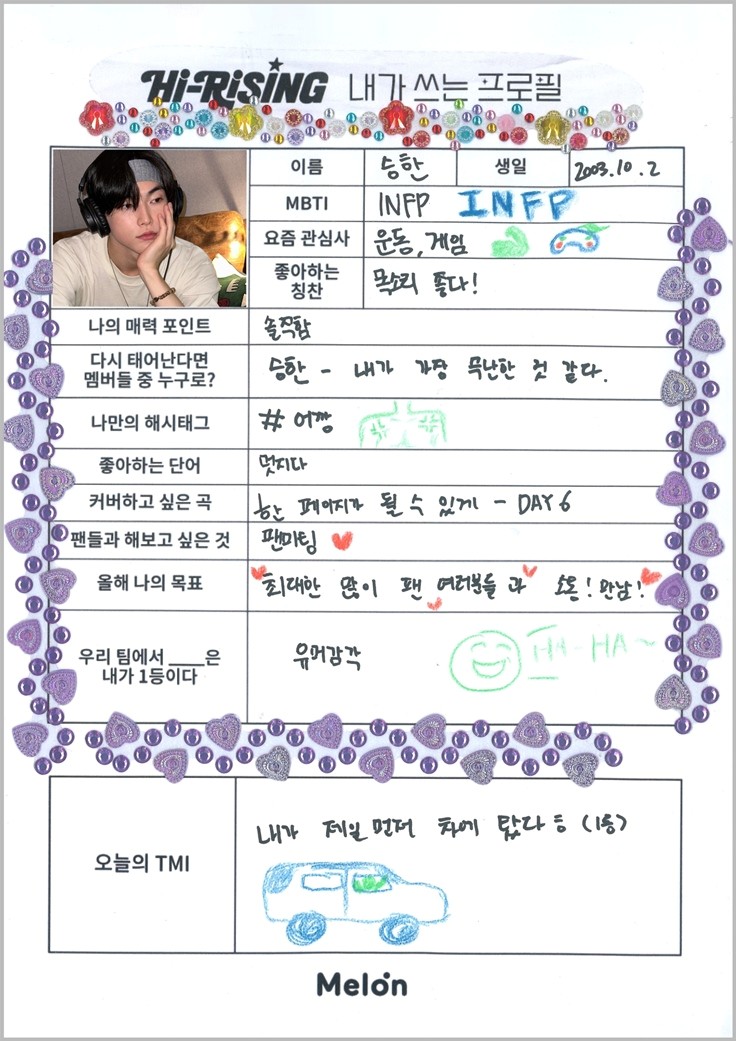 Hi-RiSING 내가 쓰는 프로필
이름 승한 생일 2003.10.2
MBTI INFP INFP
요즘 관심사 운동, 게임
좋아하는
칭찬 목소리 좋다!
나의 매력 포인트 솔직함
다시 태어난다면
멤버들 중 누구로? 승한 - 내가 가장 무난한 것 같다.
나만의 해시태그 # 어깡
좋아하는 단어 멋지다
커버하고 싶은 곡 한 페이지가 될 수 있게 - DAY6
팬들과 해보고 싶은 것 팬미팅
올해 나의 목표 최대한 많이 팬 여러분들 과 소통! 만남!
우리 팀에서 ____은
내가 1등이다 유머감각 HA-HA~
오늘의 TMI 내가 제일 먼저 차에 탔다 ㅎ (1등)
Melon